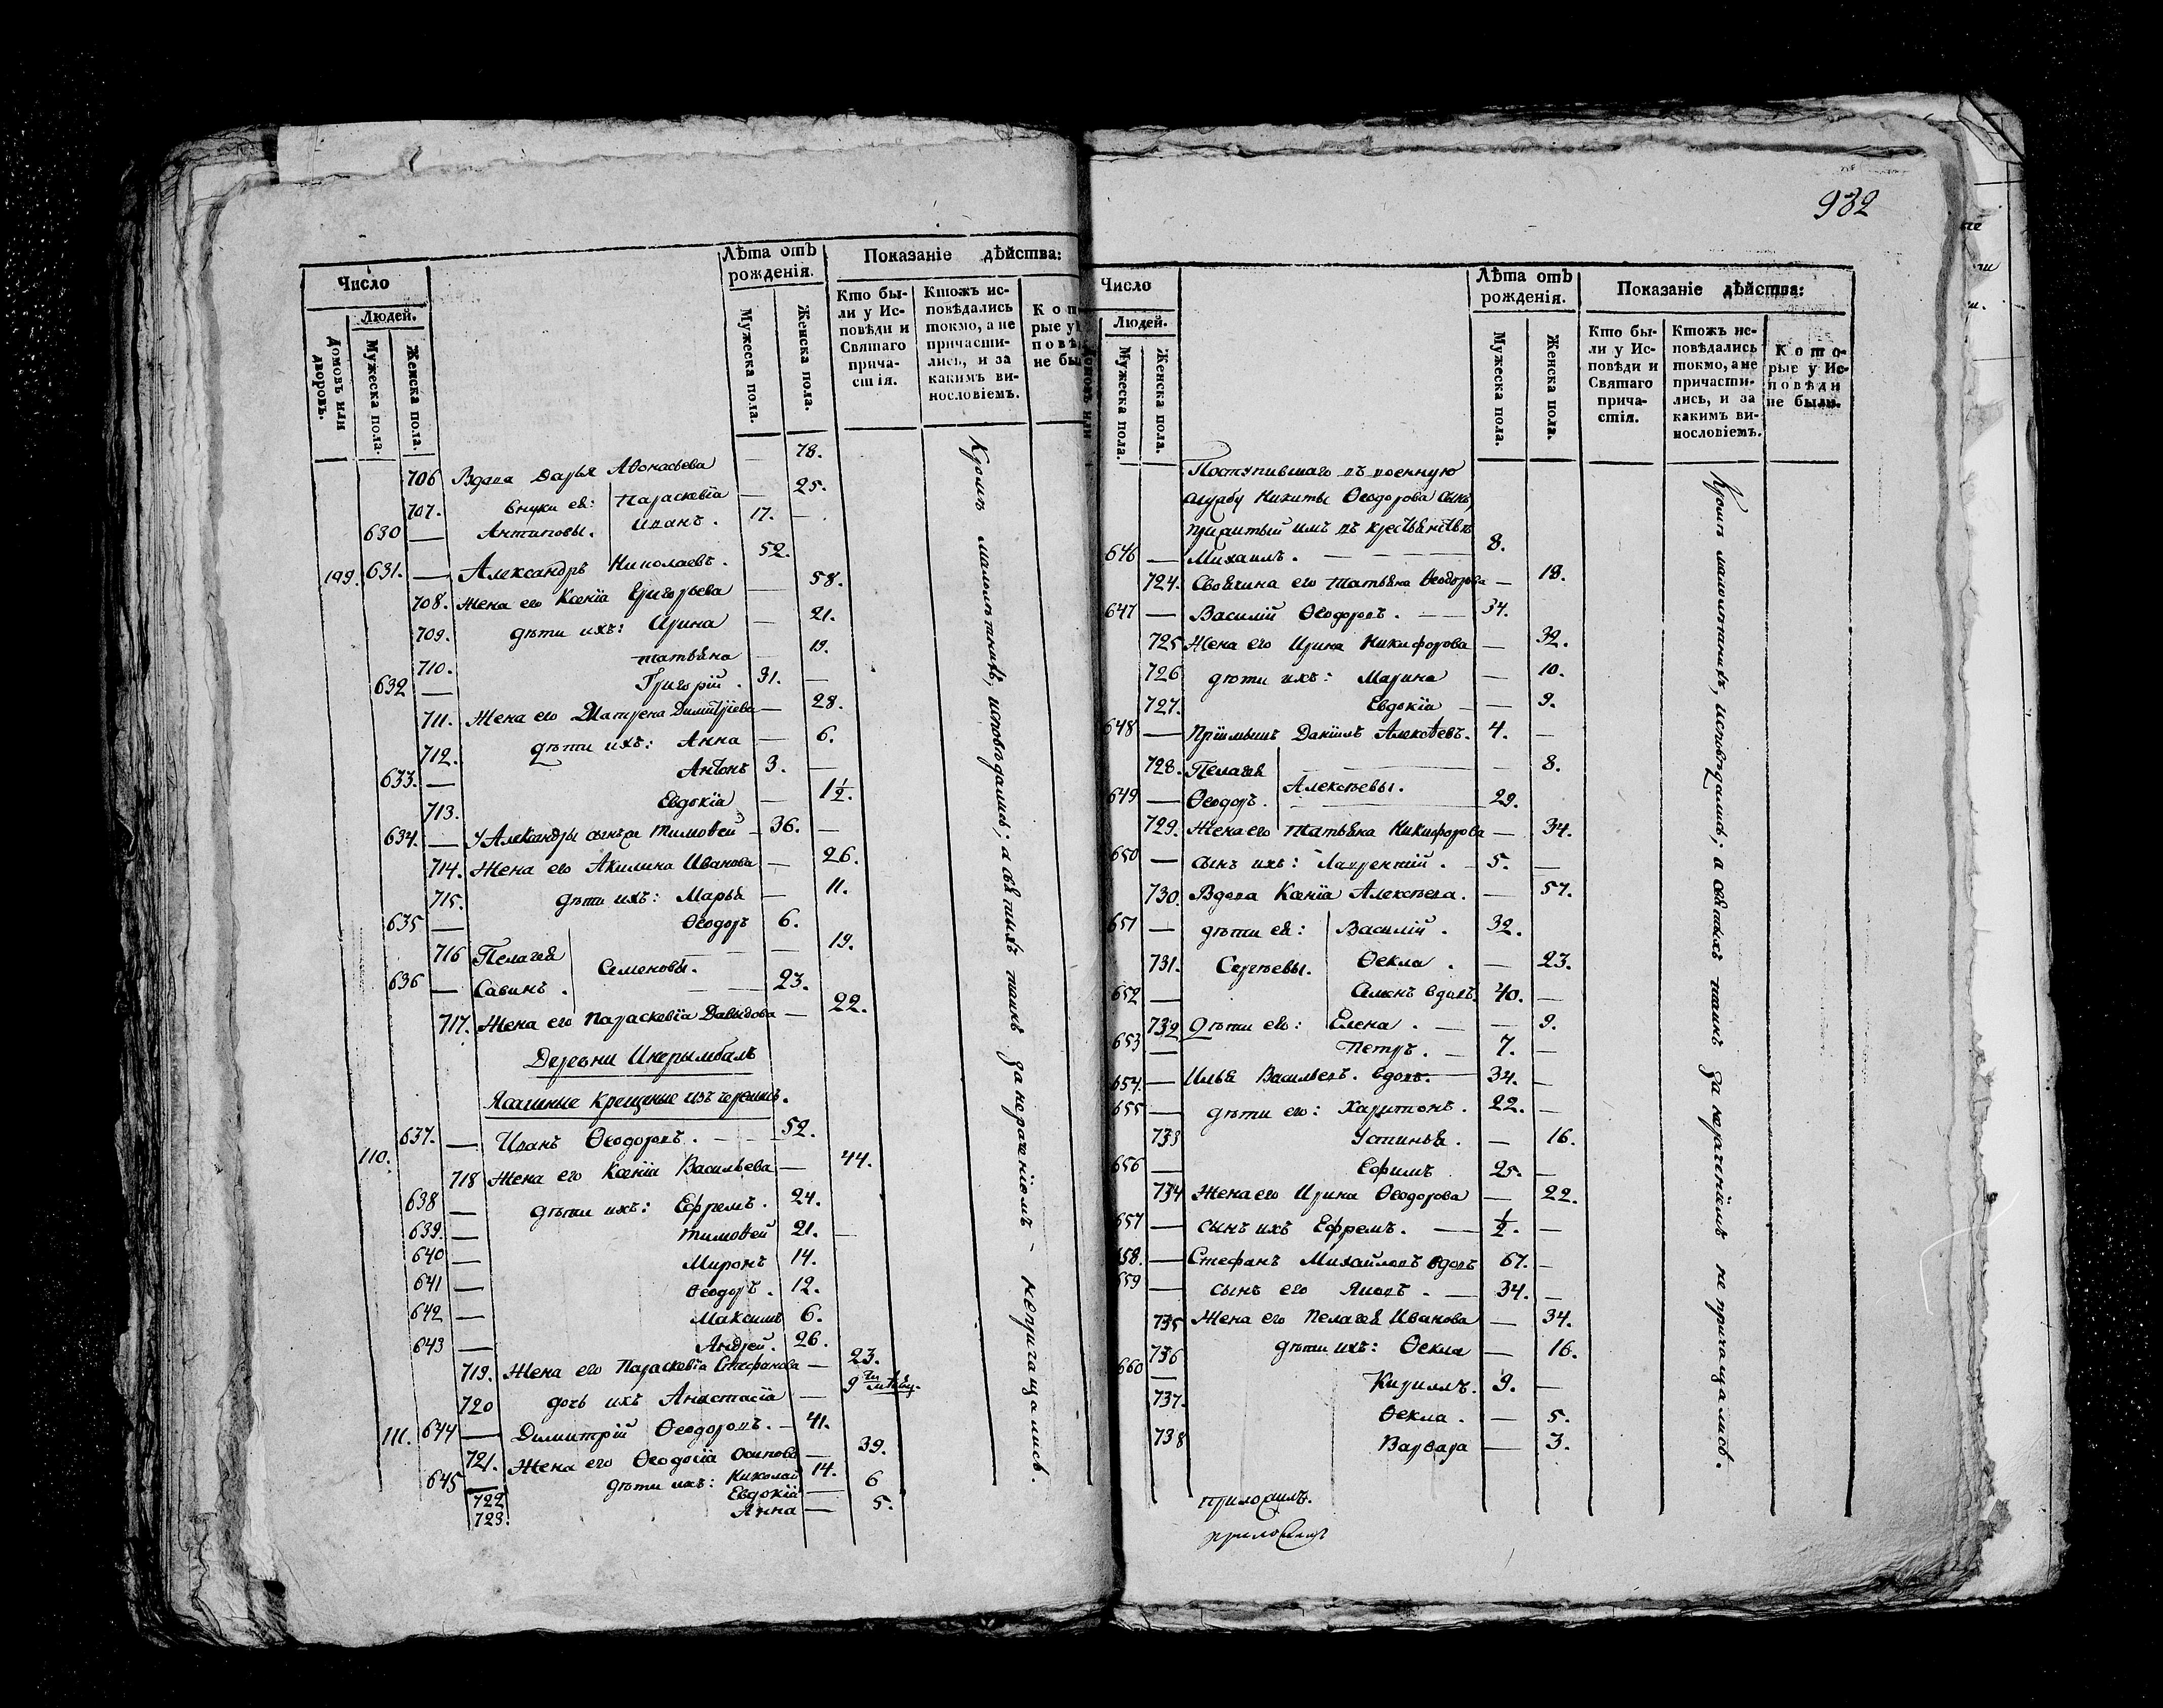 932
Число
Людей.
Домовъ или дворовъ.
Мужеска пола.
Женска пола.
Лѣта отъ рожденія.
Мужеска пола.
Женска пола.
Показаніе дѣйства:
Кто бы-
ли у Ис-
повѣди и
Святаго
прича-
стія.
Ктожъ ис-
повѣдались
токмо, а не
причасти-
лись, и за
какимъ ви-
нословіемъ.
706 Вдова Дарья Авонасьева — 78.
707. внуки ея: Параскевіа — 25.
630 — Антиповы. Иванъ. 17. —
199. 631. — Александръ Николаевъ. 52.
708. Жена его Ксеніа Григорьева — 58.
709. дѣти ихъ: Ирина — 21.
710. Татьяна — 19.
632 — Григорій. 31. —
711. Жена его Матрена Димитріева — 28.
712. дѣти ихъ: Анна — 6.
633. — Антонъ 3. —
713. Евдокіа — 1 1/2.
634. — У Александры сынъ Тимоѳей — 36. —
714. Жена его Акилина Иванова — 26.
715. дѣти ихъ: Марья — 11.
635 — Ѳеодоръ 6.
716 Пелагея — 19.
Семеновы.
636 — Савинъ. 23.
717. Жена его Параскевіа Давыдова — 22.
Деревни Инерымбалъ
Ясашные крещеные изъ черемисъ.
110. 637. — Иванъ Ѳеодоровъ. 52.
718 Жена его Ксеніа Васильева — 44.
638 — дѣти ихъ: Ефремъ. 24.
639. — Тимоѳей 21. —
640 — Миронъ 14.
641 — Ѳеодоръ. 12.
642 — Максимъ 6.
643 — Андрей. 26.
719. Жена его Параскевіа Стефанова — 23.
720 дочь ихъ Анастасіа — 9
111. 644 — Димитрій Ѳеодоровъ. — 41.
721. Жена его Ѳеодосіа Осипова — 39.
645 — дѣти ихъ: Николай 14.
722 Евдокіа — 6
723. Анна — 5.
Кромѣ малолѣтнихъ, исповѣдались; а святыхъ таинъ за нераченіемъ не пріащались.
Число
Людей.
Мужеска пола.
Женска пола.
Лѣта отъ рожденія.
Мужеска пола.
Женска пола.
Показаніе дѣйства:
Кто бы-
ли у Ис-
повѣди и
Святаго
прича-
стія.
Ктожъ ис-
повѣдались
токмо, а не
причасти-
лись, и за
какимъ ви-
нословіемъ.
Кото-
рые у Ис-
повѣди
не были.
Поступившаго въ военную
службу Никиты Ѳеодорова сынъ,
прижитый имъ въ крестьянствѣ
646 — Михаилъ. — 8.
724. Своячина его Татьяна Ѳеодорова — 18.
647 — Василій Ѳеодоровъ. — 34.
725 Жена его Ирина Никифорова — 32.
726 дѣти ихъ: Марина — 10.
727. Евдокіа — 9.
648 — Пріимышъ Даніилъ Алексѣевъ. 4. —
728. Пелагея — 8.
Алексѣевы.
649 — Ѳеодоръ. 29.
729. Жена его Татьяна Никифорова — 34.
650 — сынъ ихъ: Лаврентій. 5. —
730. Вдова Ксеніа Алексѣева. — 57.
651 — дѣти ея: Василій. 32.
731. Сергѣевы. Ѳекла. — 23.
652 — Семенъ вдовъ. 40. —
732 Дѣти его: Елена. — 9.
653 — Петръ. 7. —
654. — Илья Васильевъ. вдовъ. 34. —
655 — дѣти его: Харитонъ. 22. —
733 Устинья. — 16.
656 — Ефимъ 25. —
734 Жена его Ирина Ѳеодорова — 22.
657 — сынъ ихъ Ефремъ. — 1/2. —
658. — Стефанъ Михайловъ вдовъ 67. —
659 — сынъ его Яковъ. — 34. —
735 Жена его Пелагея Иванова — 34.
736 дѣти ихъ: Ѳекла — 16.
660 — Кирилъ. 9. —
737. Ѳекла. — 5.
738 Варвара — 3.
Кромѣ малолѣтнихъ, исповѣдались; а святыхъ таинъ за нераченіемъ не пріащались.